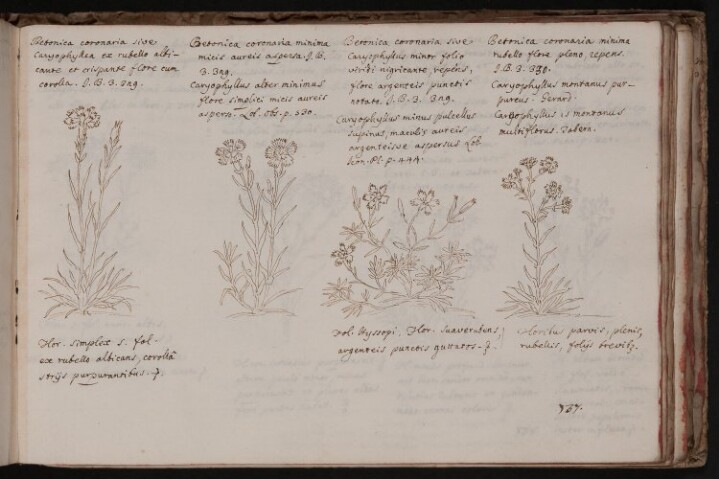 Betonica coronaria sive
Caryophyllea ex rubello albi-
cante et crispante flore cum
corolla. J.B. 3. 329.
Betonica coronaria minima
micis aureis aspersa. J.B.
3. 329.
Caryophyllus alter minimus
flore simplici micis aureis
asperso. Lob. obs. p. 330.
Betonica coronaria sive
Caryophyllus minor folio
viridi nigricante, repens,
flore argenteis punctis
notato. J.B. 3. 329.
Caryophyllus minus pulcellus
supinus, maculis aureis
argenteisve aspersus Lob.
Icon. Pl. p. 444.
Betonica coronaria minima
rubello flore pleno repens.
J.B. 3. 330.
Caryophyllus montanus pur-
pureus. Gerard.
Caryophyllus montanus
multiflorus. Tabern.
Flor. simplex 5. fol.
ex rubello albicans, corolla
strijs purpurantibus. 7.
Fol. Hyssopi. Flor. suaverubens,
argenteis punctis guttatos. 7.
Floribus parvis, plenis,
rubellis, folijs brevib9.